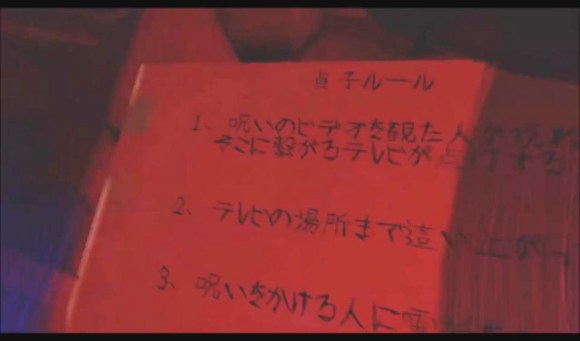 貞子ルール
1、呪いのビデオを観た人が現
そこに繋がるテレビが点灯する
2、テレビの場所まで這い上がっ
3、呪いをかける人に電